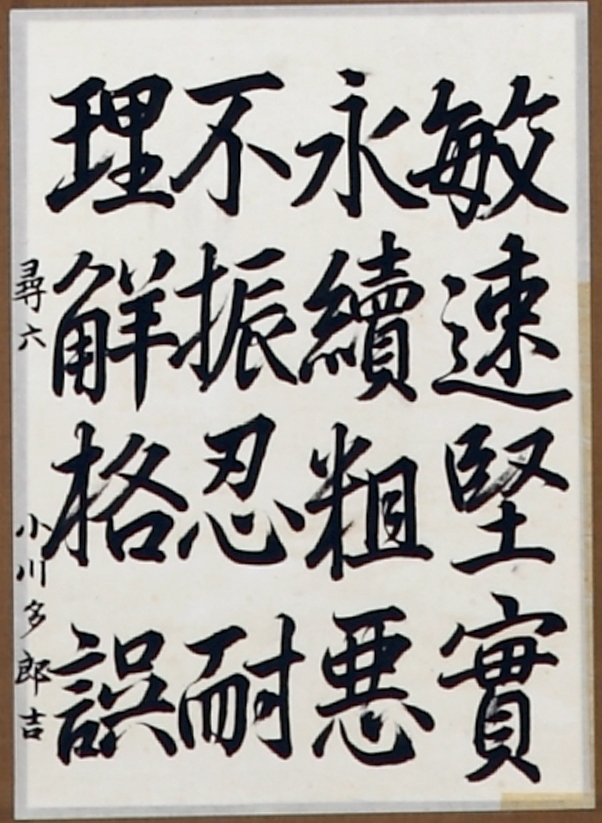 敏速堅實
永續粗悪
不振忍耐
理解格誤
尋六 小川多郎吉